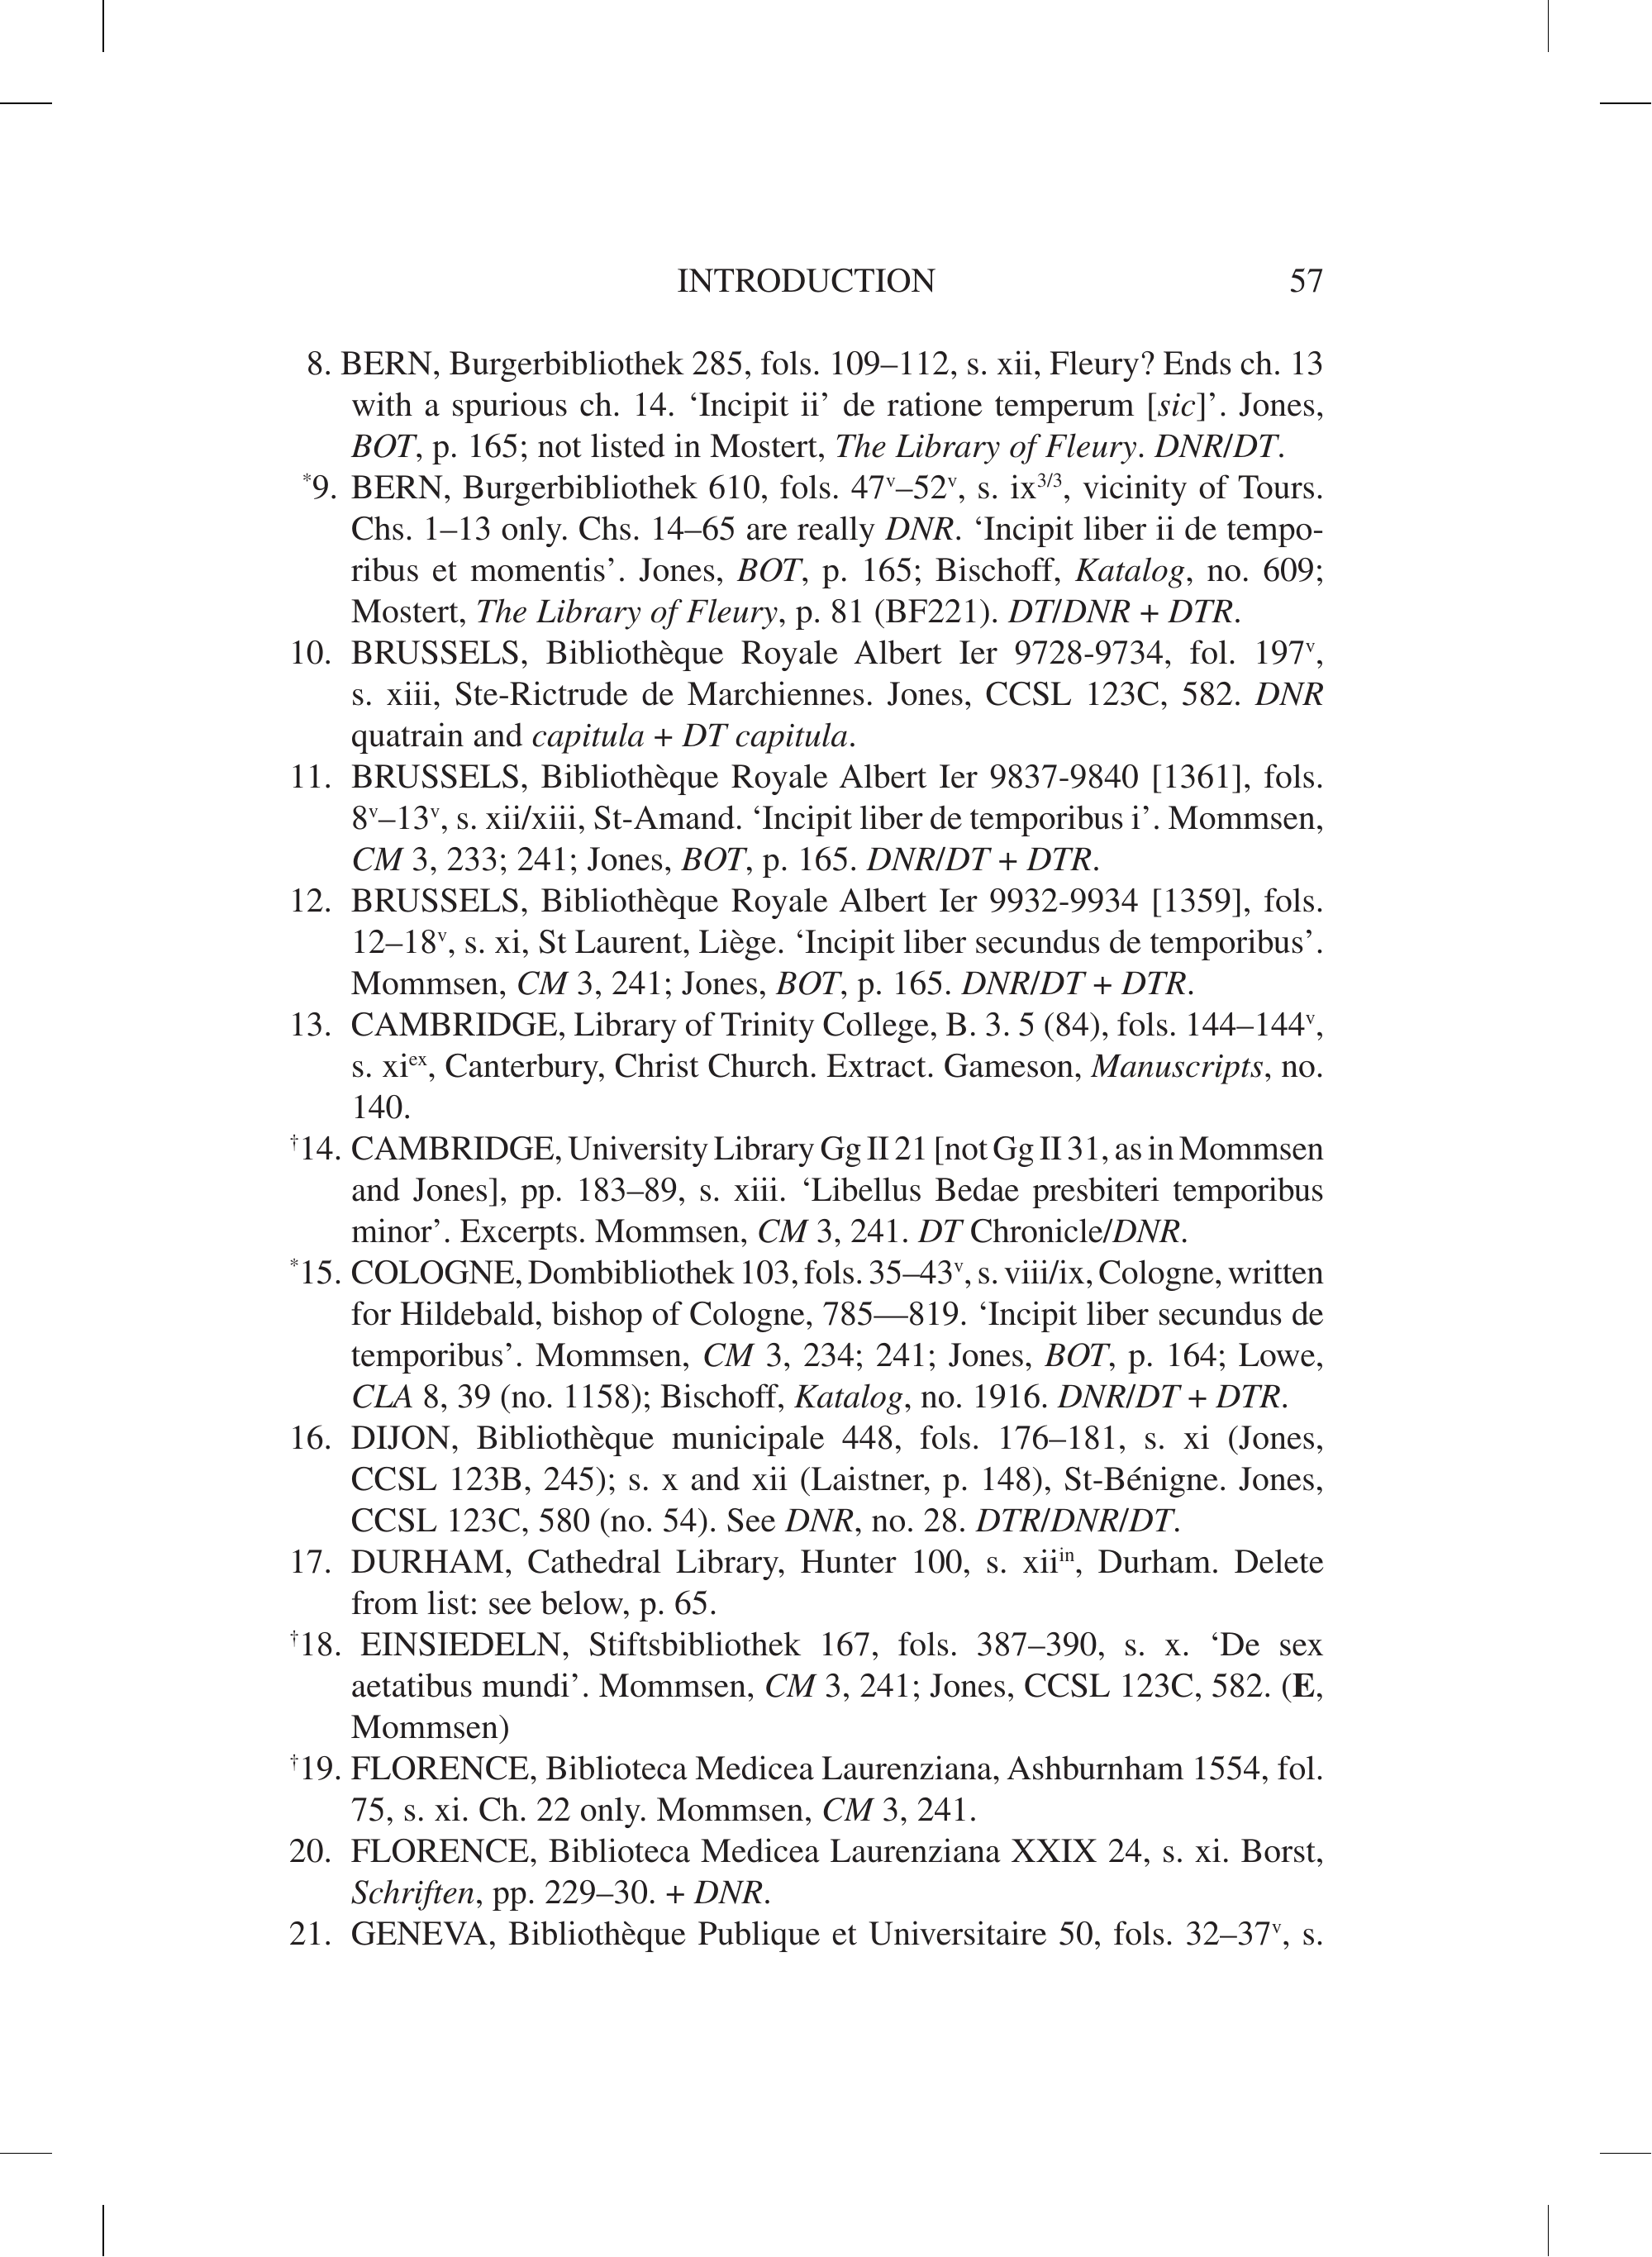 INTRODUCTION 57
8. BERN, Burgerbibliothek 285, fols. 109–112, s. xii, Fleury? Ends ch. 13
with a spurious ch. 14. ‘Incipit ii’ de ratione temperum [sic]’. Jones,
BOT, p. 165; not listed in Mostert, The Library of Fleury. DNR/DT.
*9. BERN, Burgerbibliothek 610, fols. 47ᵛ–52ᵛ, s. ix³/³, vicinity of Tours.
Chs. 1–13 only. Chs. 14–65 are really DNR. ‘Incipit liber ii de tempo-
ribus et momentis’. Jones, BOT, p. 165; Bischoff, Katalog, no. 609;
Mostert, The Library of Fleury, p. 81 (BF221). DT/DNR + DTR.
10. BRUSSELS, Bibliothèque Royale Albert Ier 9728-9734, fol. 197ᵛ,
s. xiii, Ste-Rictrude de Marchiennes. Jones, CCSL 123C, 582. DNR
quatrain and capitula + DT capitula.
11. BRUSSELS, Bibliothèque Royale Albert Ier 9837-9840 [1361], fols.
8ᵛ–13ᵛ, s. xii/xiii, St-Amand. ‘Incipit liber de temporibus i’. Mommsen,
CM 3, 233; 241; Jones, BOT, p. 165. DNR/DT + DTR.
12. BRUSSELS, Bibliothèque Royale Albert Ier 9932-9934 [1359], fols.
12–18ᵛ, s. xi, St Laurent, Liège. ‘Incipit liber secundus de temporibus’.
Mommsen, CM 3, 241; Jones, BOT, p. 165. DNR/DT + DTR.
13. CAMBRIDGE, Library of Trinity College, B. 3. 5 (84), fols. 144–144ᵛ,
s. xiᵉˣ, Canterbury, Christ Church. Extract. Gameson, Manuscripts, no.
140.
†14. CAMBRIDGE, University Library Gg II 21 [not Gg II 31, as in Mommsen
and Jones], pp. 183–89, s. xiii. ‘Libellus Bedae presbiteri temporibus
minor’. Excerpts. Mommsen, CM 3, 241. DT Chronicle/DNR.
*15. COLOGNE, Dombibliothek 103, fols. 35–43ᵛ, s. viii/ix, Cologne, written
for Hildebald, bishop of Cologne, 785—819. ‘Incipit liber secundus de
temporibus’. Mommsen, CM 3, 234; 241; Jones, BOT, p. 164; Lowe,
CLA 8, 39 (no. 1158); Bischoff, Katalog, no. 1916. DNR/DT + DTR.
16. DIJON, Bibliothèque municipale 448, fols. 176–181, s. xi (Jones,
CCSL 123B, 245); s. x and xii (Laistner, p. 148), St-Bénigne. Jones,
CCSL 123C, 580 (no. 54). See DNR, no. 28. DTR/DNR/DT.
17. DURHAM, Cathedral Library, Hunter 100, s. xiiⁱⁿ, Durham. Delete
from list: see below, p. 65.
†18. EINSIEDELN, Stiftsbibliothek 167, fols. 387–390, s. x. ‘De sex
aetatibus mundi’. Mommsen, CM 3, 241; Jones, CCSL 123C, 582. (E,
Mommsen)
†19. FLORENCE, Biblioteca Medicea Laurenziana, Ashburnham 1554, fol.
75, s. xi. Ch. 22 only. Mommsen, CM 3, 241.
20. FLORENCE, Biblioteca Medicea Laurenziana XXIX 24, s. xi. Borst,
Schriften, pp. 229–30. + DNR.
21. GENEVA, Bibliothèque Publique et Universitaire 50, fols. 32–37ᵛ, s.